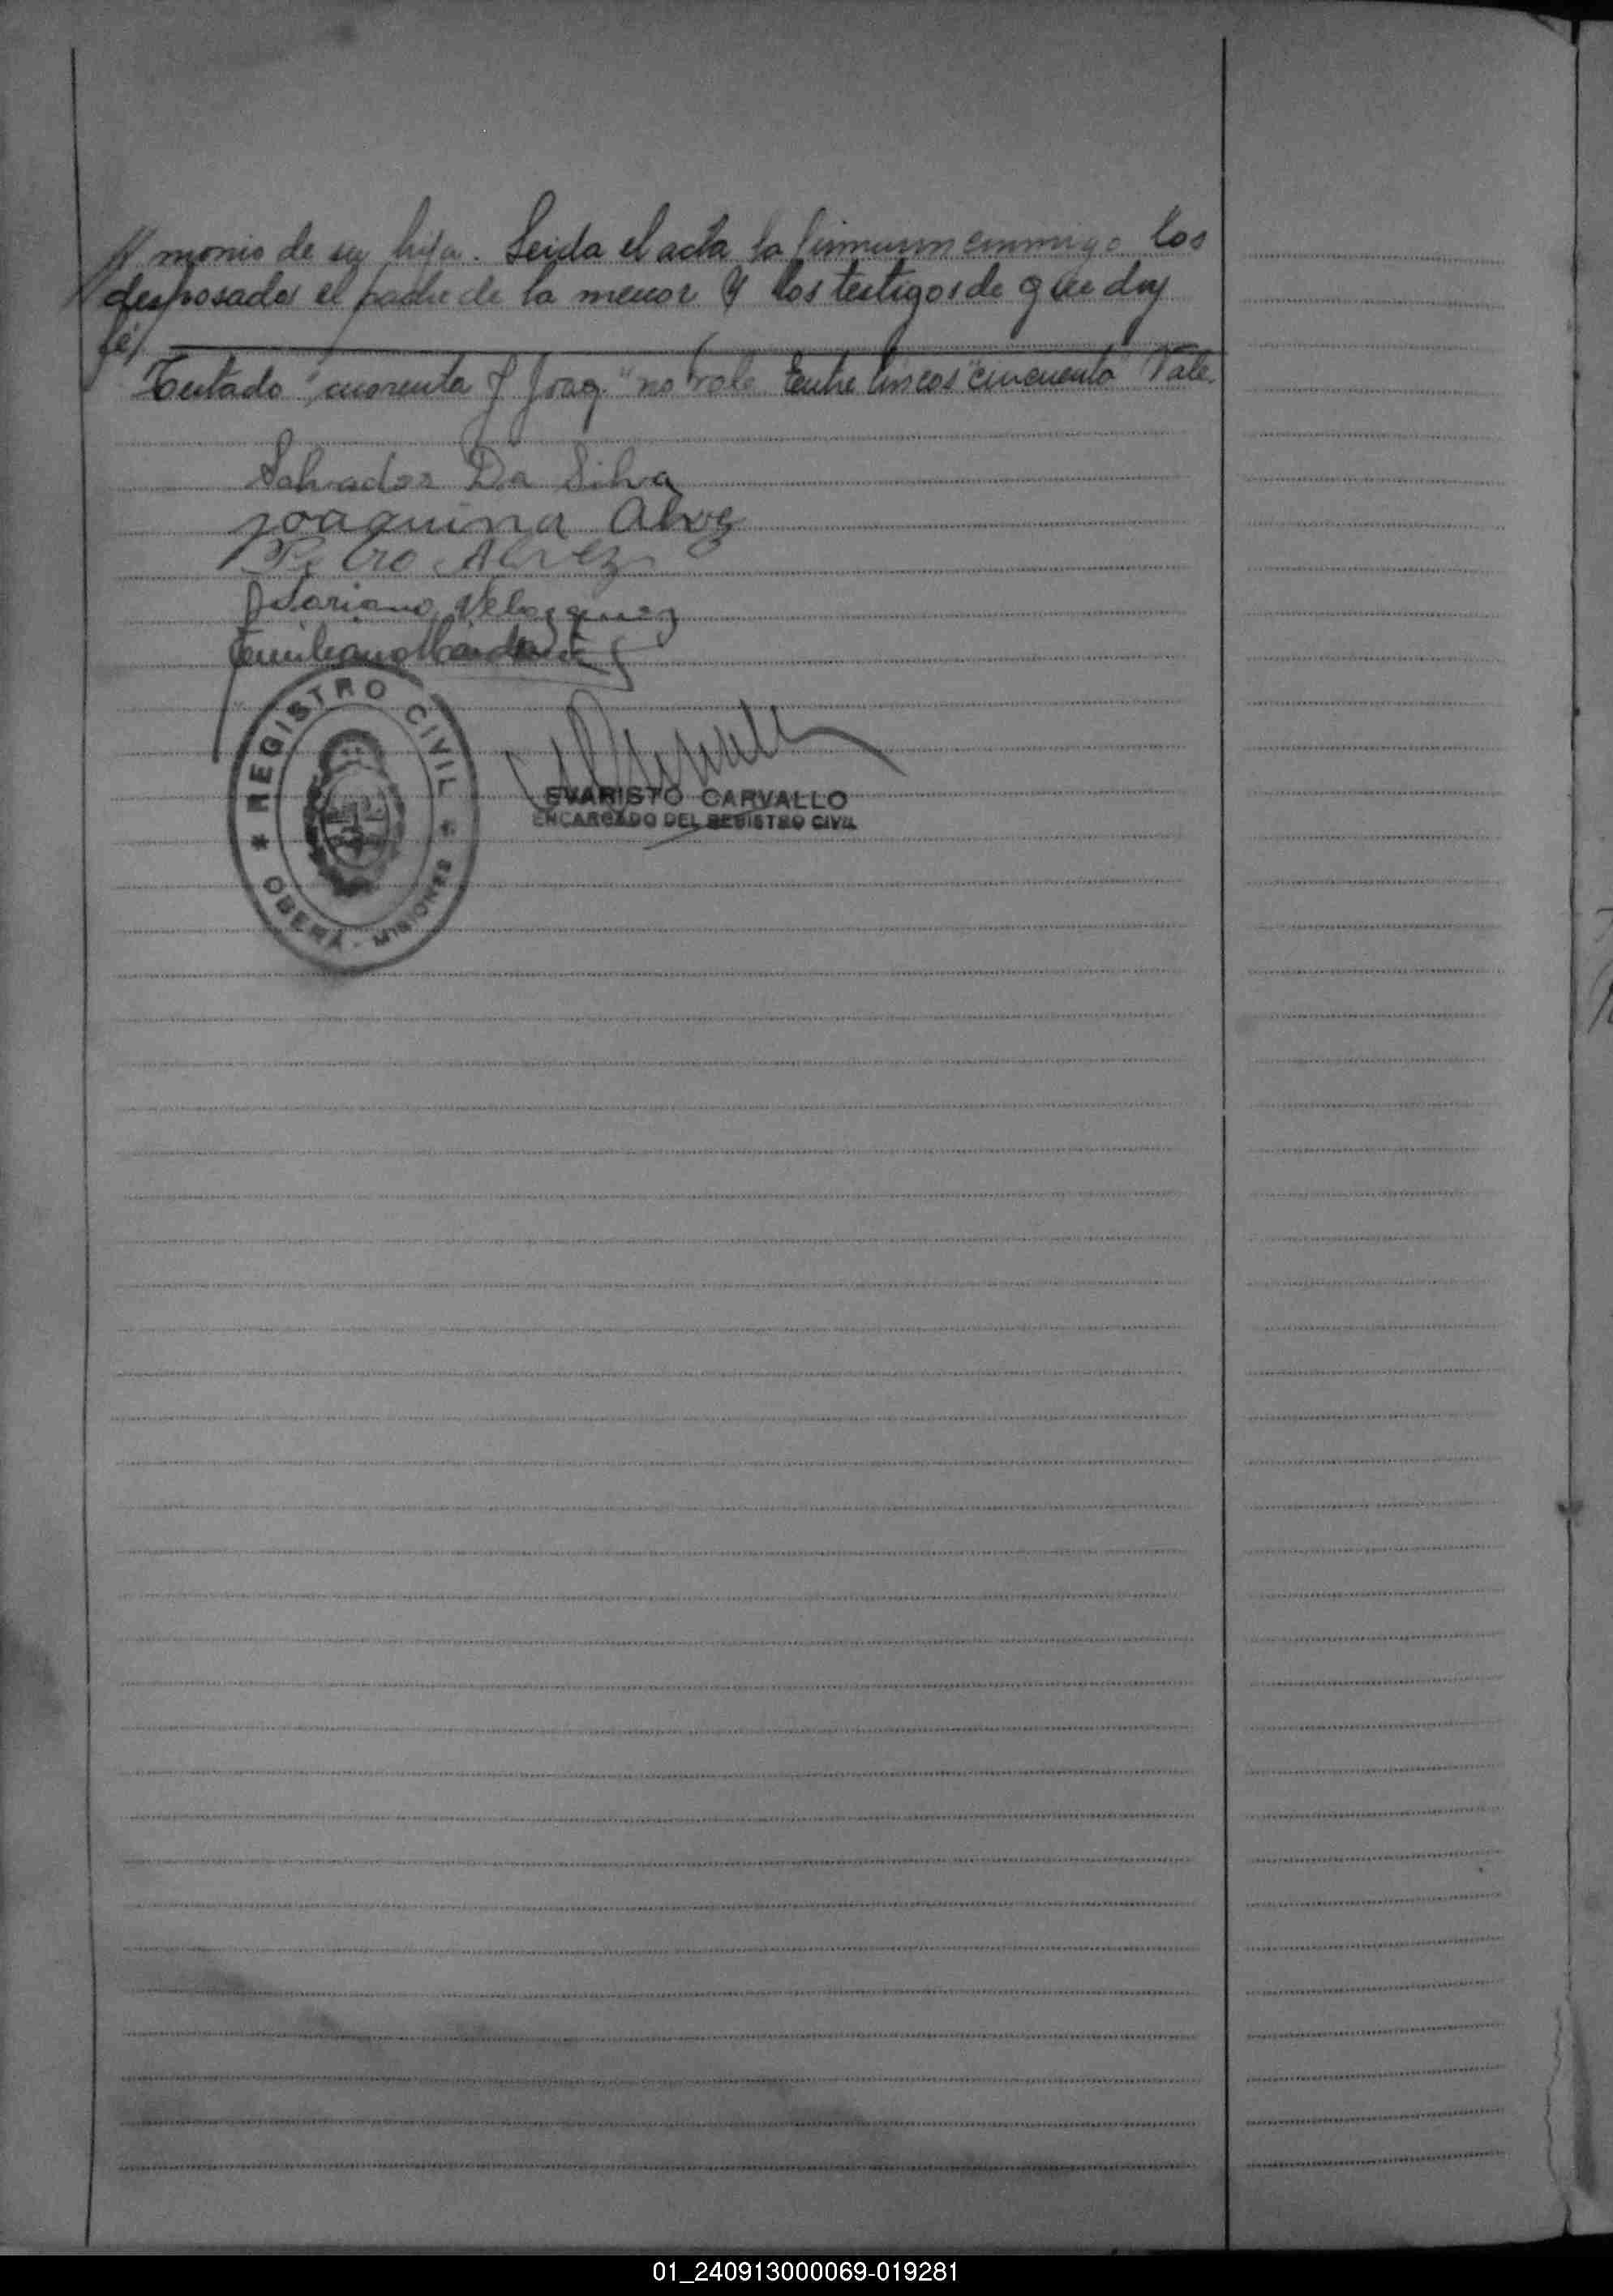 // monio de su hija. Leida el acta la firmaron conmigo los
desposados el padre de la menor y los testigos de que doy
fé/
Testado "cuarenta y Joaq" no vale Entre lineas "cincuenta" Vale.
Salvador Da Silva
Joaquina Alves
Pedro Alvez
Mariano Velazquez
Emiliano
REGISTRO CIVIL
* OBERÁ - MISIONES *
EVARISTO CARVALLO
ENCARGADO DEL REGISTRO CIVIL
01_240913000069-019281